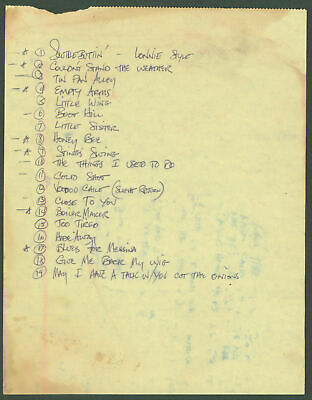 - * ① SCUTTLEBUTTIN' - LONNIE STYLE
- * ② COULDN'T STAND THE WEATHER
- ③ TIN PAN ALLEY
- * ④ EMPTY ARMS
5 LITTLE WING
- ⑥ BOOT HILL
7 LITTLE SISTER
- * ⑧ HONEY BEE
- * ⑨ STANG'S SWANG
- 10 THE THINGS I USED TO DO
- 11 COLD SHOT
12 VOODOO CHILE (SLIGHT RETURN)
13 CLOSE TO YOU
- * 14 BOILER MAKER
15 TOO TIRED
16 HIDE AWAY
* 17 BLUES FOR MESSINA
18 GIVE ME BACK MY WIG
19 MAY I HAVE A TALK W/YOU